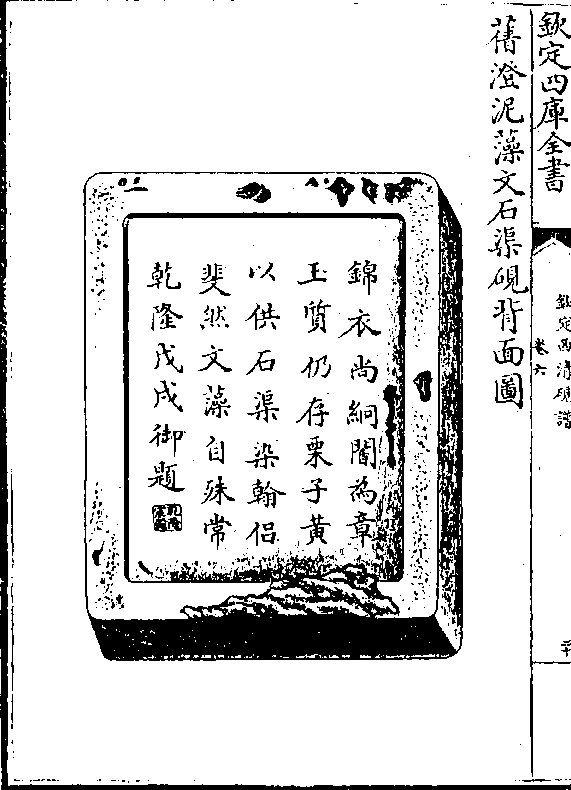 欽定四庫全書
欽定西清硯譜
卷六
舊澄泥藻文石渠硯背面圖
錦衣尚絅闇為章
玉質仍存栗子黃
以供石渠染翰侶
斐然文藻自殊常
乾隆戊戌御題